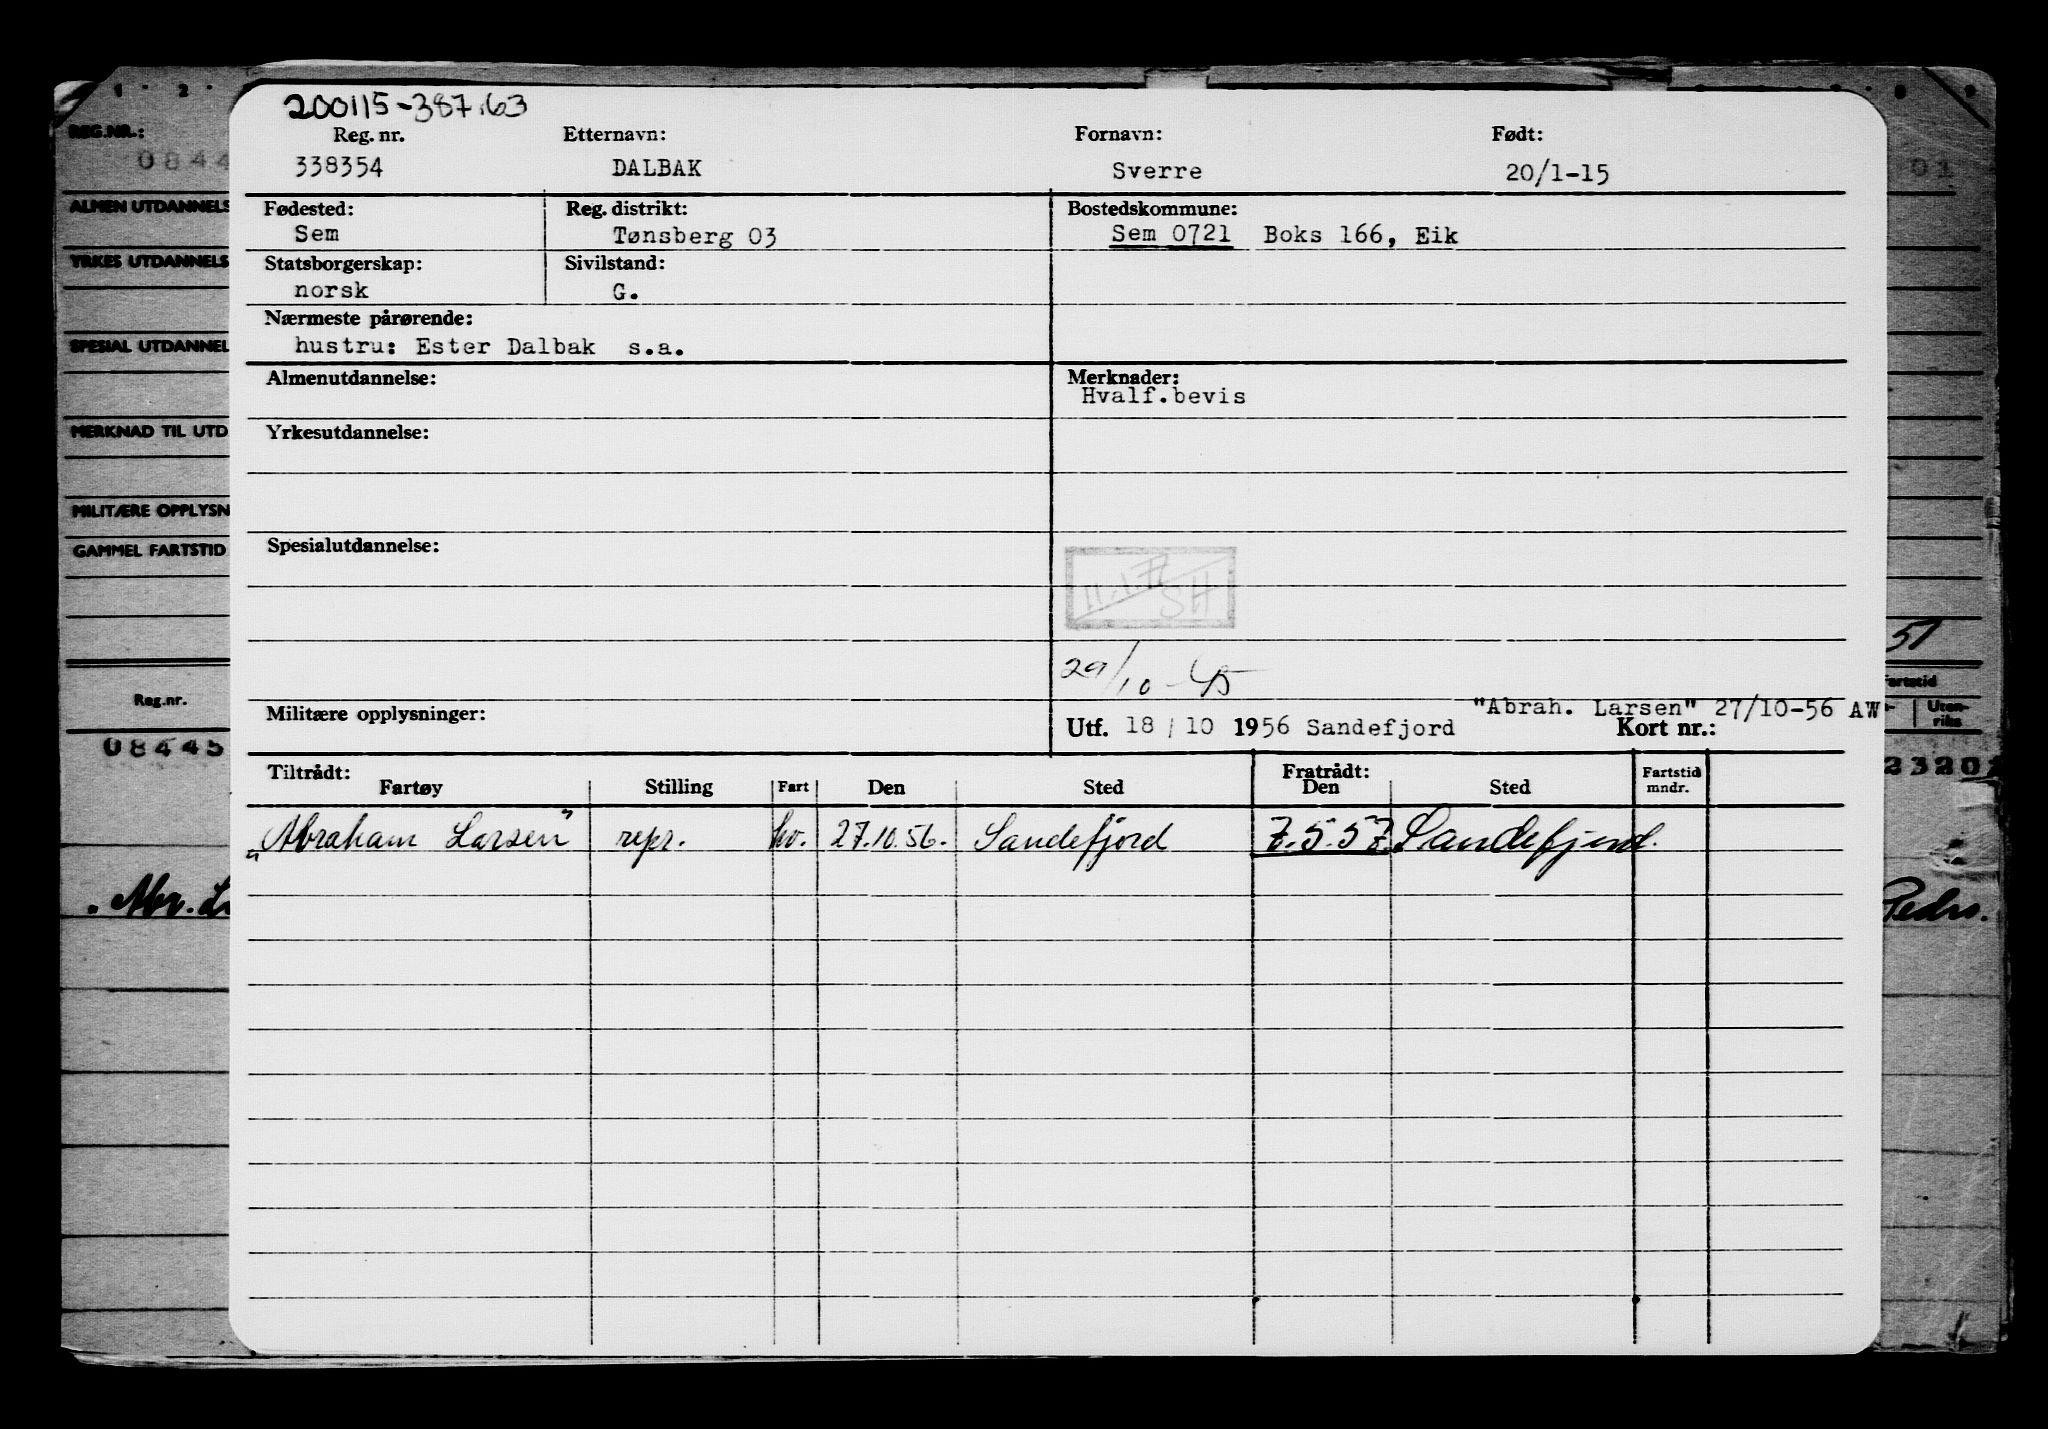 200115-387.63
Reg. nr. Etternavn: Fornavn: Født:
338354 DALBAK Sverre 20/1-15
Fødested: Reg. distrikt: Bostedskommune:
Sem Tønsberg 03 Sem 0721 Boks 166, Eik
Statsborgerskap: Sivilstand:
norsk G.
Nærmeste pårørende:
hustru: Ester Dalbak s.a.
Almenutdannelse: Merknader:
Hvalf.bevis
Yrkesutdannelse:
Spesialutdannelse:
SH
29/10-45
"Abrah. Larsen" 27/10-56 AW
Militære opplysninger: Utf. 18/10 1956 Sandefjord Kort nr.:
Tiltrådt: Fratrådt: Fartstid
Fartøy Stilling Fart Den Sted Den Sted mndr.
„Abraham Larsen" repr. hv. 27.10.56. Sandefjord 7.5.57. Sandefjord.
REG.NR.:
0844
01
ALMEN UTDANNELS
YRKES UTDANNELS
SPESIAL UTDANNEL
MERKNAD TIL UTD
MILITÆRE OPPLYSN
GAMMEL FARTSTID
51
Reg.nr. Fartstid
Uten-
riks
08445
2320
„Abr. L
Pedro.